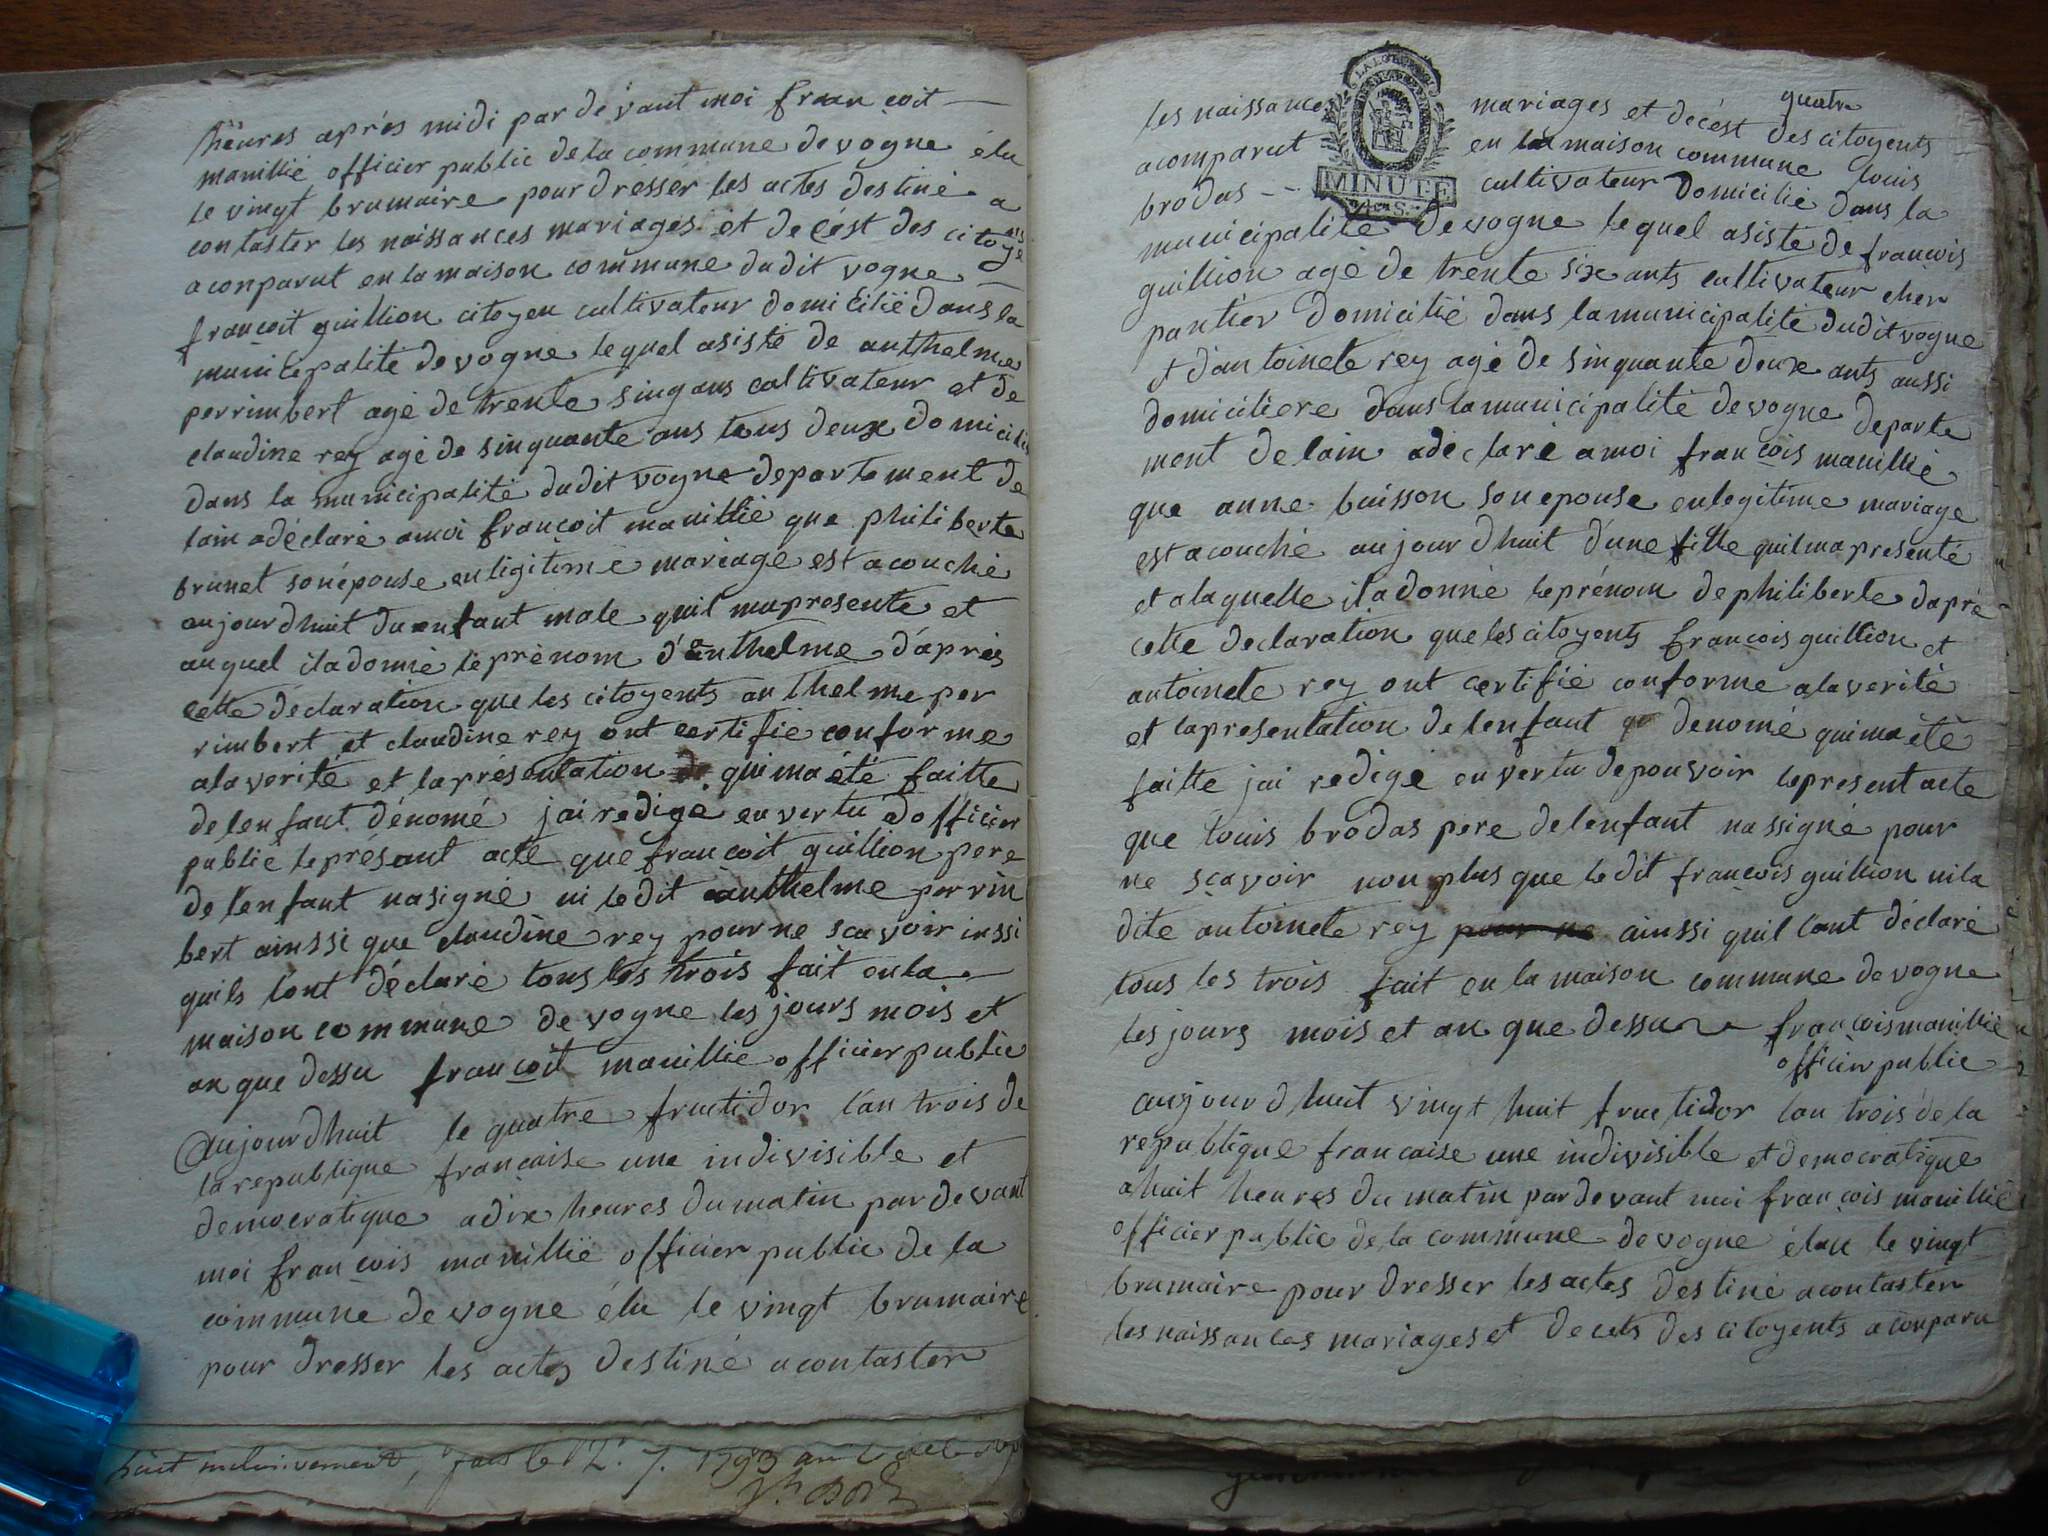 heures aprés midi par dévant moi francoit
manillié officier public de la commune de vogne élu
le vingt brumaire pour dresser les actes destiné a
contaster les naissances mariages et decést des citoyé
aconparut en la maison commune dudit vogne
francoit guillion citoyen cultivateur domicilié dans la
municipalité de vogne lequel asisté de anthelme
perrimbert agé de trente sinq ans cultivateur et de
claudine rey agé de sinquante ans tous deux domicilié
dans la municipalité dudit vogne departement de
lain adéclaré amoi francoit manillié que philiberte
brunet sonépouse en ligitime mariage est acouché
aujourdhuit dunenfant male quil mapresente et
auquel iladonné leprénom d'anthelme d'aprés
cette déclaration que les citoyents anthelme per
rimbert et claudine rey ont certifié conforme
alaverité et laprésentation qui ma été faitte
de lenfant dénomé jai redigé en vertu dofficier
public leprésant acte que francoit guillion pere
de lenfant nasigné ni le dit anthelme perrin
bert ainssi que claudine rey pour ne scavoir inssi
quils lont déclaré tous les trois fait en la
maison commune de vogne les jours mois et
an que dessu francoit manillié officier public
Aujourdhuit le quatre fructidor lan trois de
la republique francaise une indivisible et
democratique adix heures du matin par devant
moi francois manillié officier public de la
commune de vogne élu le vingt brumaire
pour dresser les actes destiné acontaster
huit 1793
quatre
les naissances mariages et decést des citoyents
acomparut en la maison commune louis
brodas -- cultivateur domicilié dans la
LA LOI
MINUTE
municipalité de vogne lequel asisté de francois
guillion agé de trente six ants cultivateur cher
pantier domicilié dans la municipalité dudit vogne
et dantoinete rey agé de sinquante deux ants aussi
domiciliere dans la municipalité de vogne departe
ment de lain adéclaré amoi francois manillié
que anne buisson son epouse enlegitime mariage
est acouché aujourdhuit d'une fille quil ma presenté
et alaquelle iladonné leprénom de philiberte daprè
cette declaration que les citoyents francois guillion et
antoinete rey ont certifié conforme alaverité
et lapresentation de lenfant denomé qui ma été
faitte jai redigé en vertu de pouvoir lepresent acte
que louis brodas pere de lenfant nassigné pour
ne scavoir non plus que ledit francois guillion nila
dite antoinete rey pour ne ainssi quil lont déclaré
tous les trois fait en la maison commune de vogne
les jours mois et an que dessu francois manillié
officier public
aujourdhuit vingt huit fructidor lan trois de la
republique francaise une indivisible et democratique
ahuit heures du matin par devant moi francois manillié
officier public de la commune de vogne élu le vingt
brumaire pour dresser les actes destiné acontaster
les naissances mariages et decets des citoyents aconparu